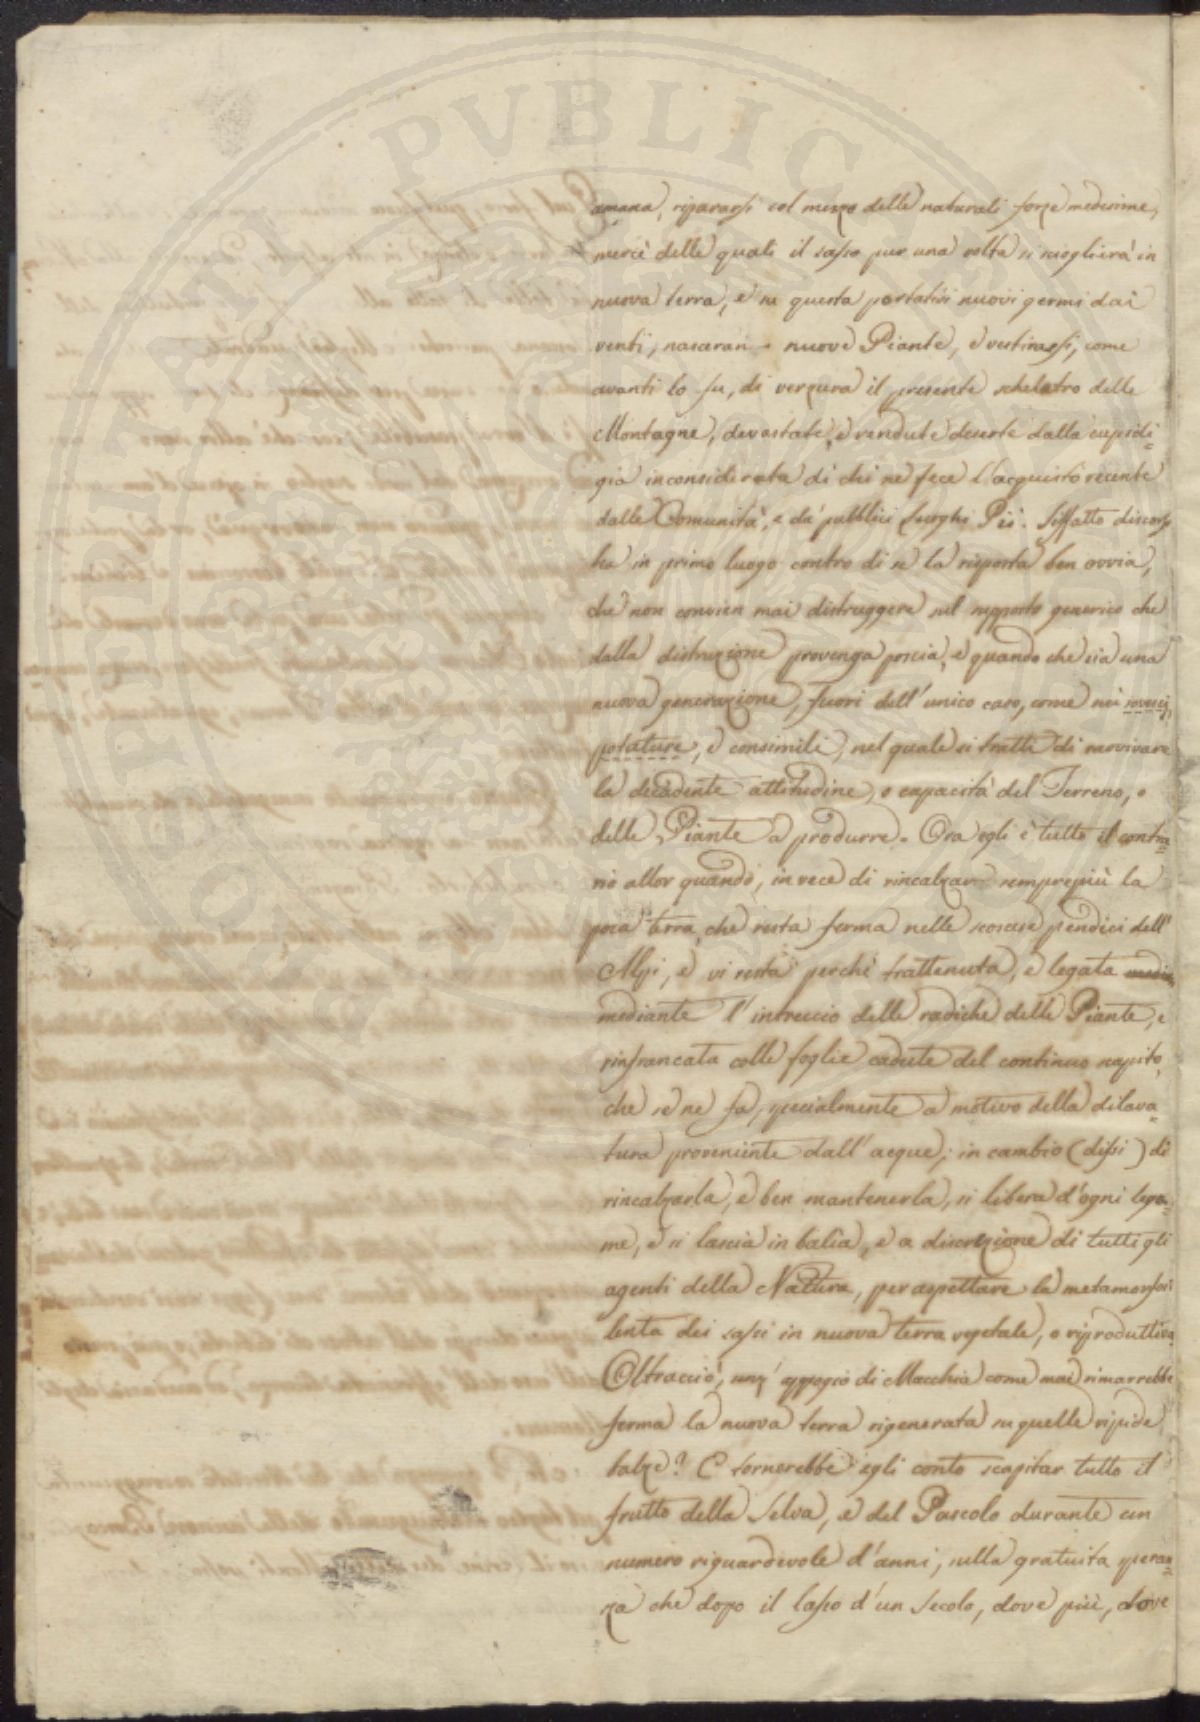 umana, ripararsi col mezzo delle naturali forze medesime,
mercè delle quali il sasso pur una volta si scioglierà in
nuova terra, e su questa portativi nuovi germi dai
venti, nasceran nuove Piante, e vestirassi, come
avanti lo fu, di verzura il presente scheletro delle
Montagne, devastate, e rendute deserte dalla cupidi=
gia inconsiderata di chi ne fece l'acquisto recente
dalle Comunità, e da' pubblici Luoghi Pii. Siffatto discorso
ha in primo luogo contro di se la risposta ben ovvia,
che non convien mai distruggere sul supposto generico che
dalla distruzione provenga poscia, e quando che sia una
nuova generazione, fuori dell'unico caso, come nei rovesci,
potature, e consimili, nel quale si tratti di ravvivare
la decadente attitudine, o capacità del Terreno, o
delle Piante a produrre. Ora egli è tutto il contra=
rio allor quando, invece di rincalzar semprepiù la
poca terra, che resta ferma nelle scoscese pendici dell'
Alpi, e vi resta perchè trattenuta, e legata
mediante l'intreccio delle radiche delle Piante, e
rinfrancata colle foglie cadute del continuo scapito,
che se ne fa, specialmente a motivo della dilava=
tura proveniente dall'acque; in cambio (dissi) di
rincalzarla, e ben mantenerla, si libera d'ogni lega=
me, e si lascia in balìa, e a discrezione di tutti gli
agenti della Natura, per aspettare la metamorfosi
lenta dei sassi in nuova terra vegetale, o riproduttiva
Oltracciò, senz'appoggio di Macchia come mai rimarrebbe
ferma la nuova terra rigenerata su quelle ripide
balze? E tornerebbe egli conto scapitar tutto il
frutto della Selva, e del Pascolo durante un
numero riguardevole d'anni, sulla gratuita speran=
za che dopo il lasso d'un Secolo, dove più, dove